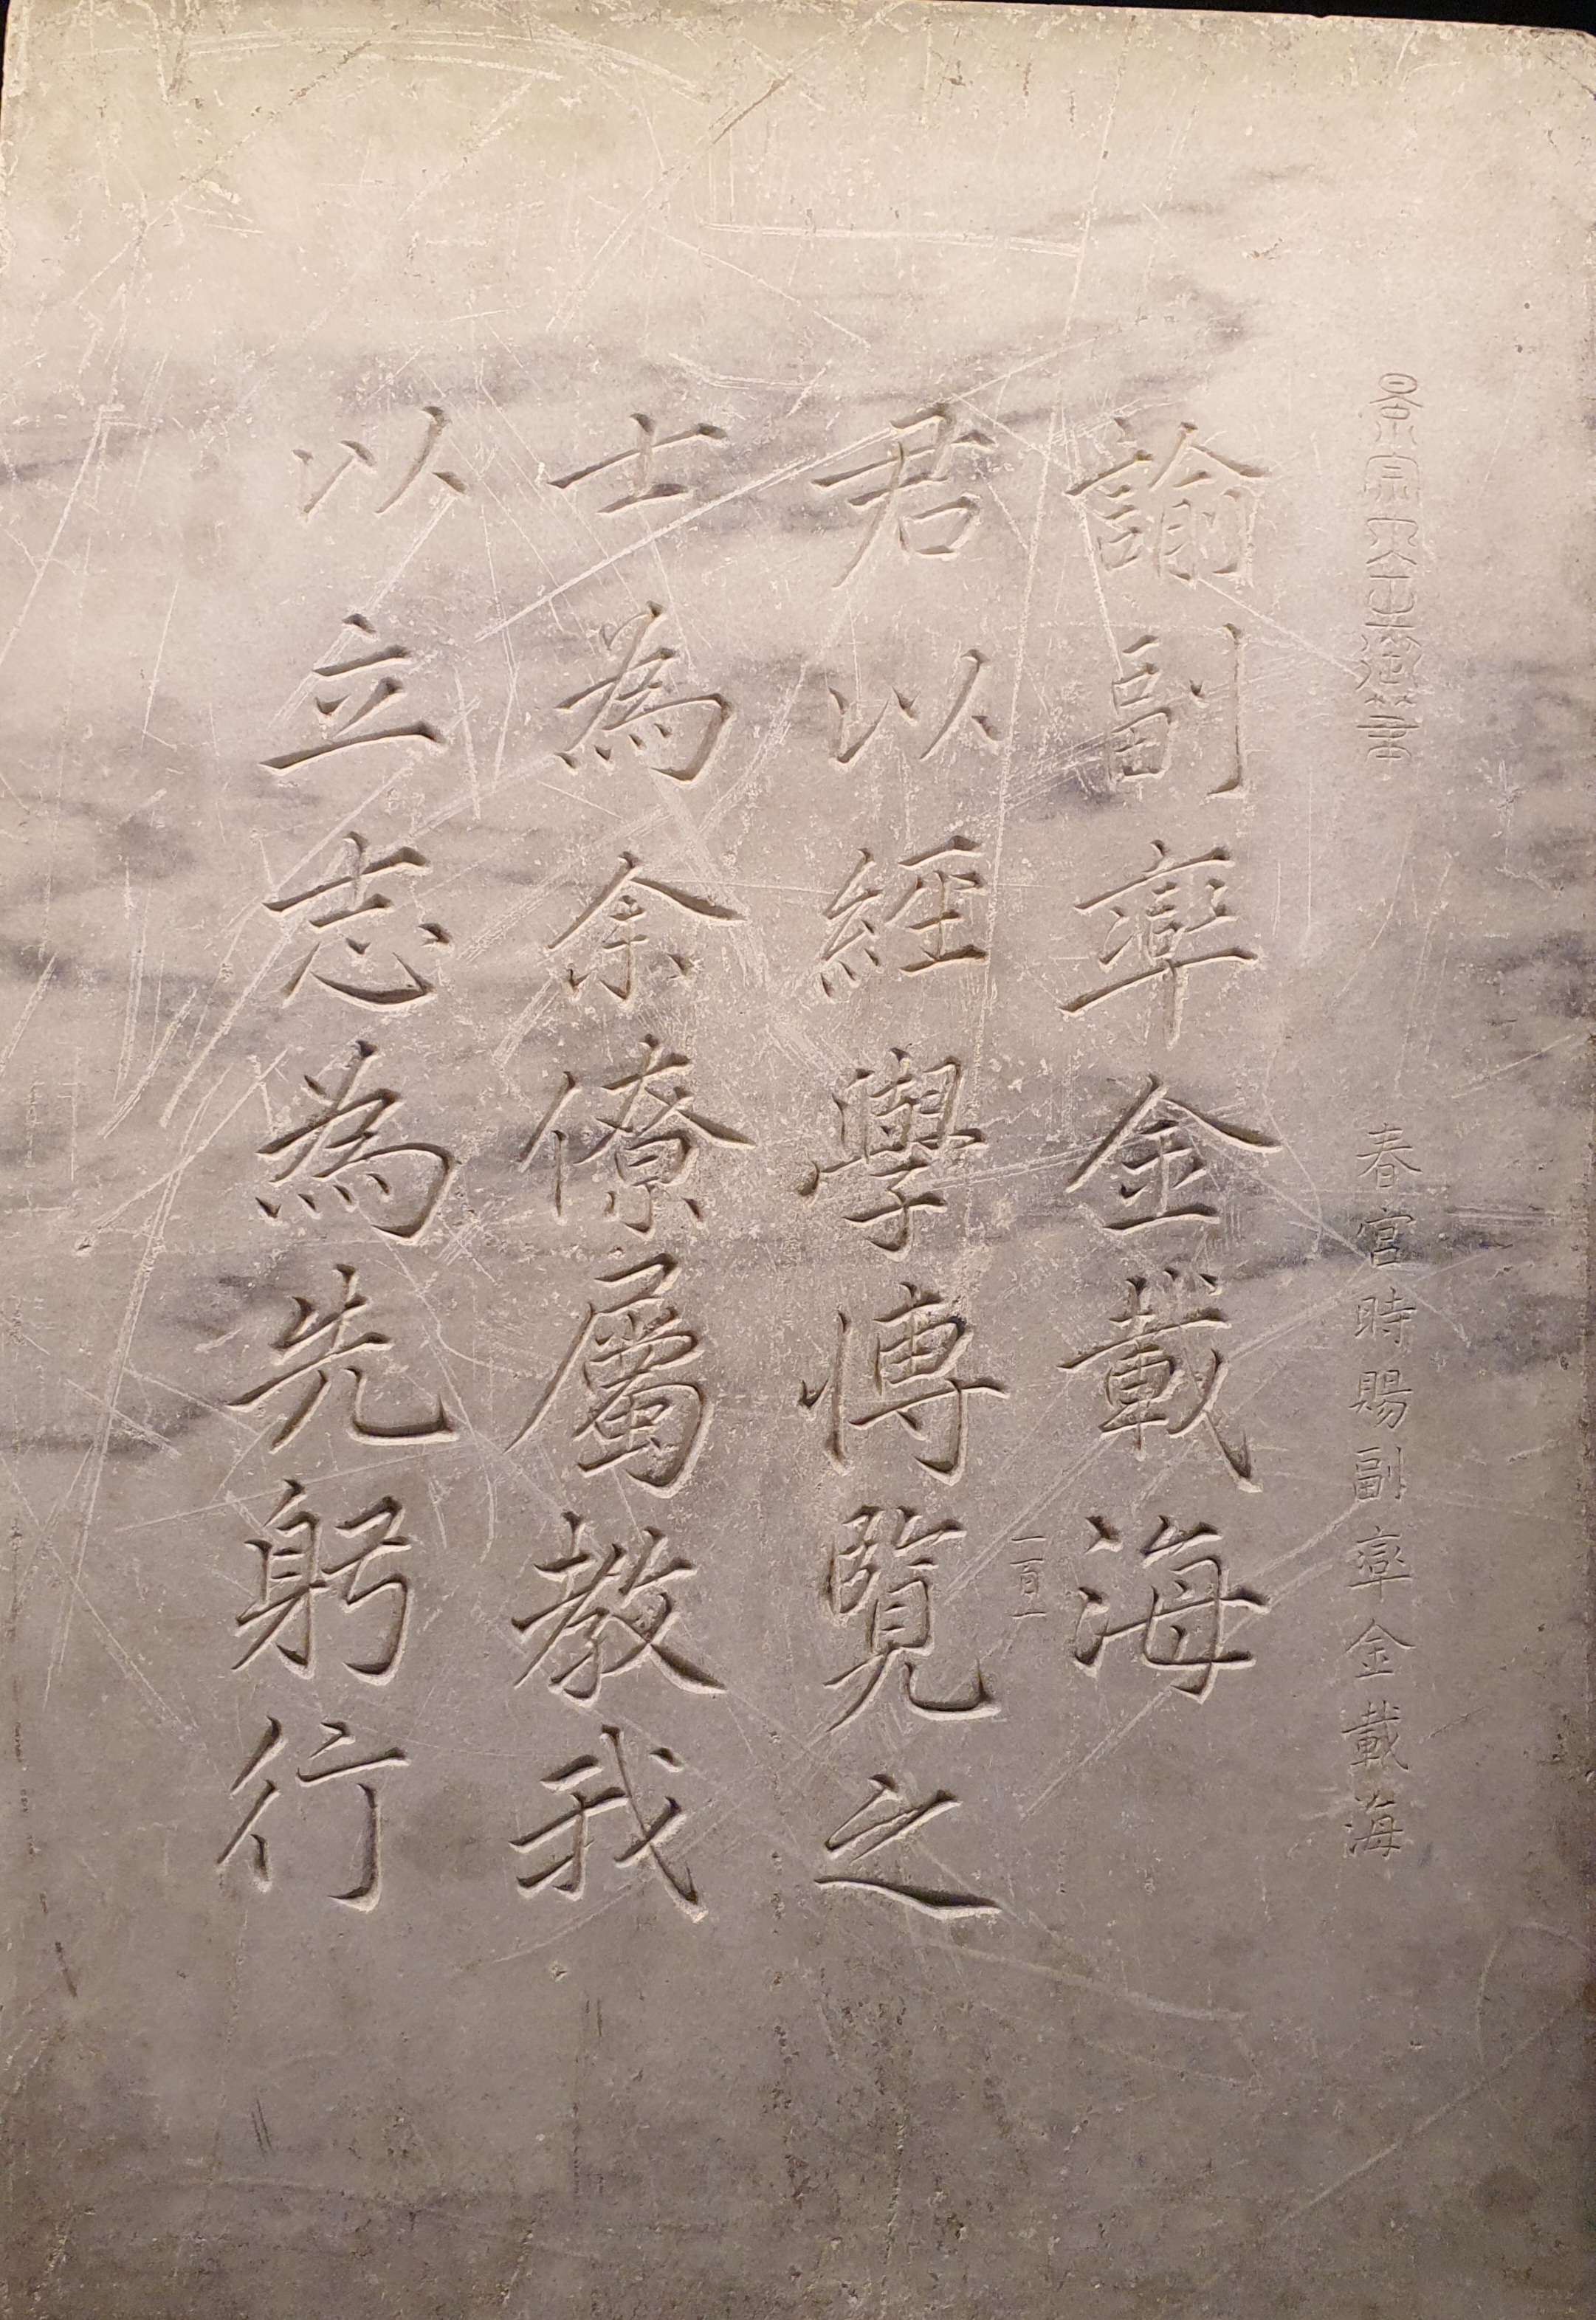 景宗大王御筆 春宮時賜副率金載海
諭副率金載海
一百一
君以經學愽覽之
士為余僚屬教我
以立志為先躬行